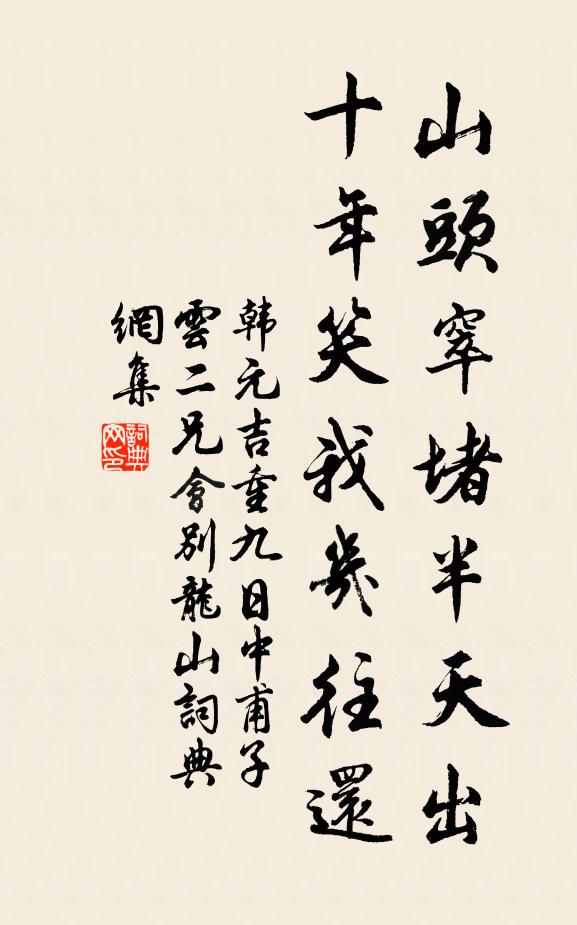 山頭窣堵半天出
十年笑我幾往還
韩元吉重九日中甫子
雲二兄會別龍山詞典
網集
詞典
网印